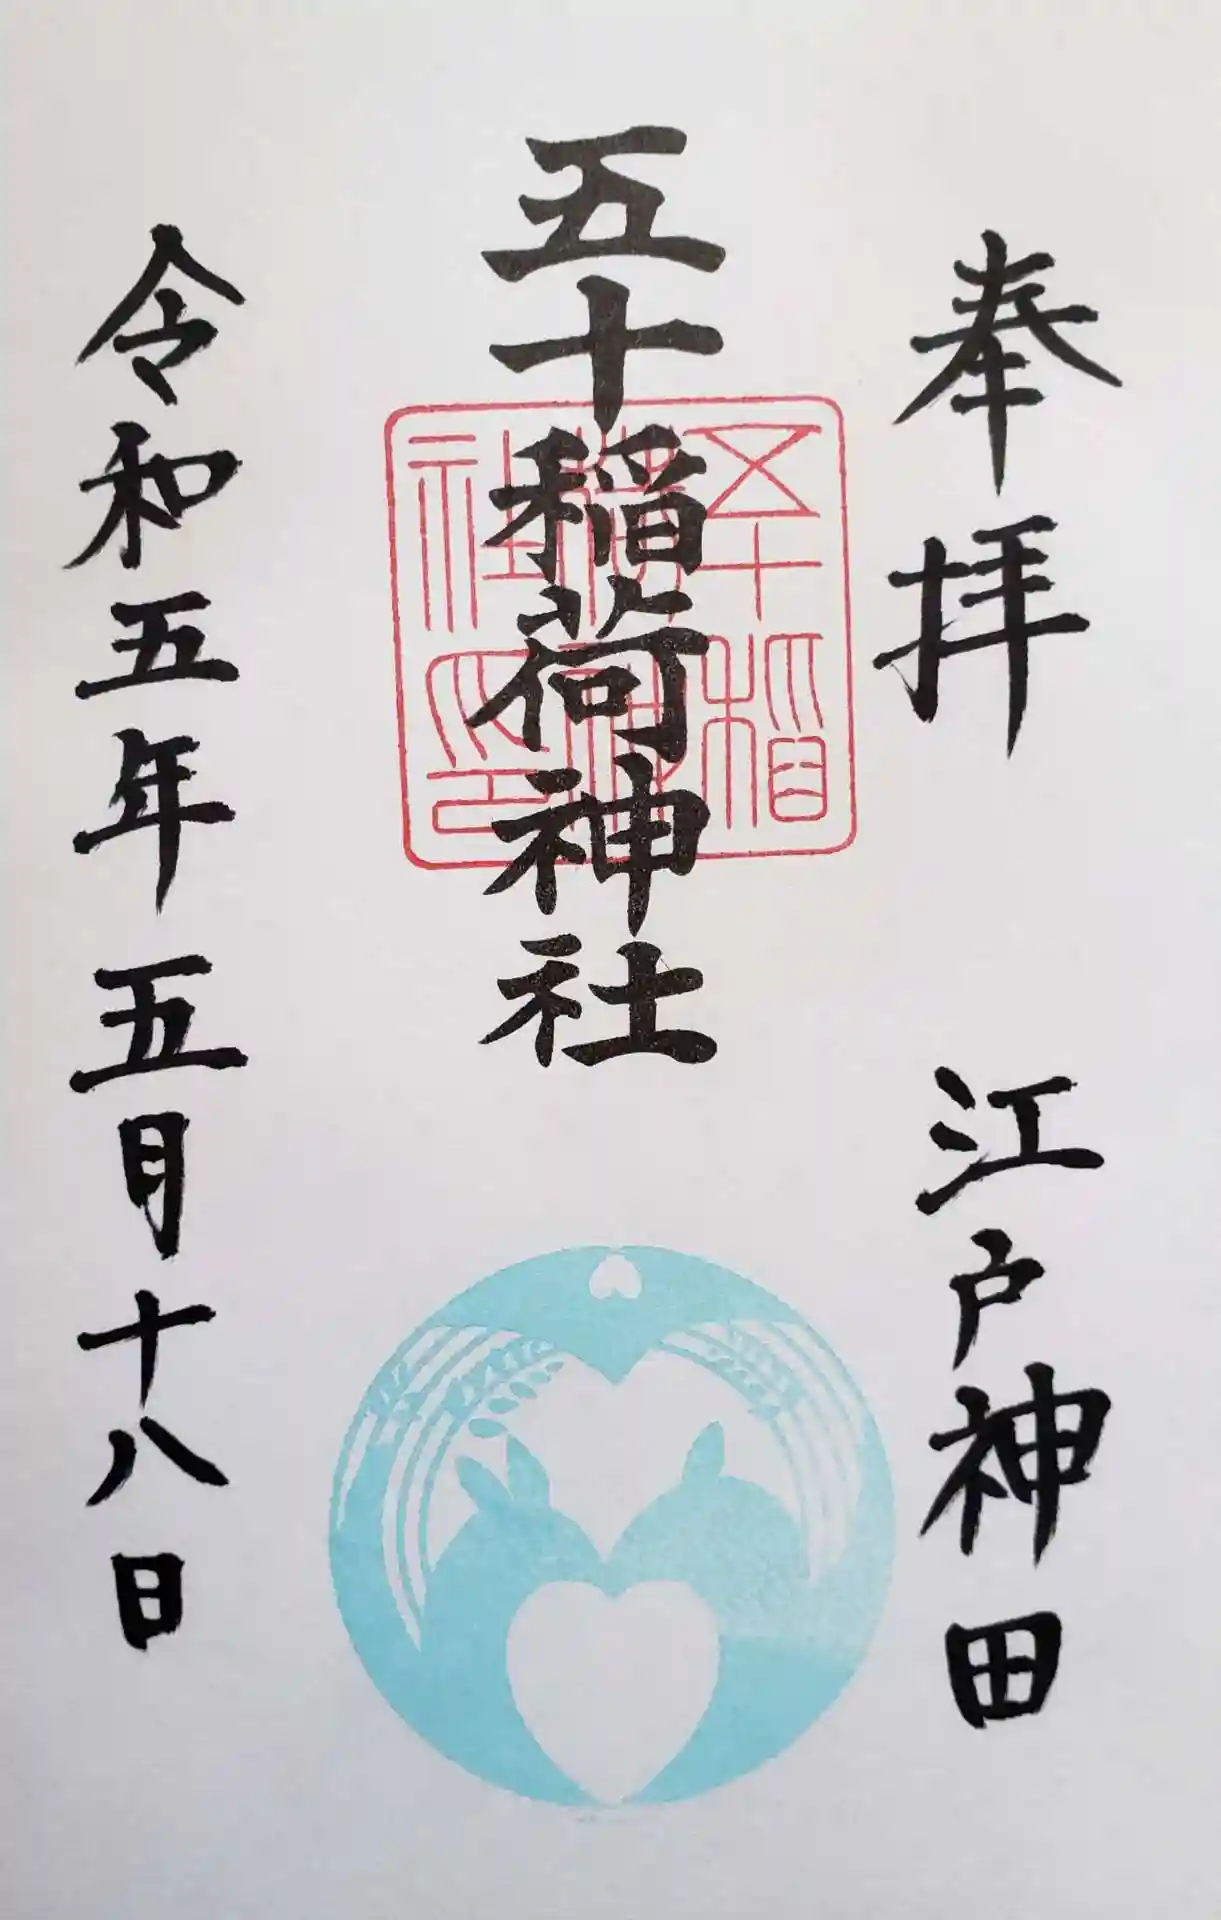 奉拝　江戸神田
五十稲荷神社
五十稲荷神社印
令和五年五月十八日